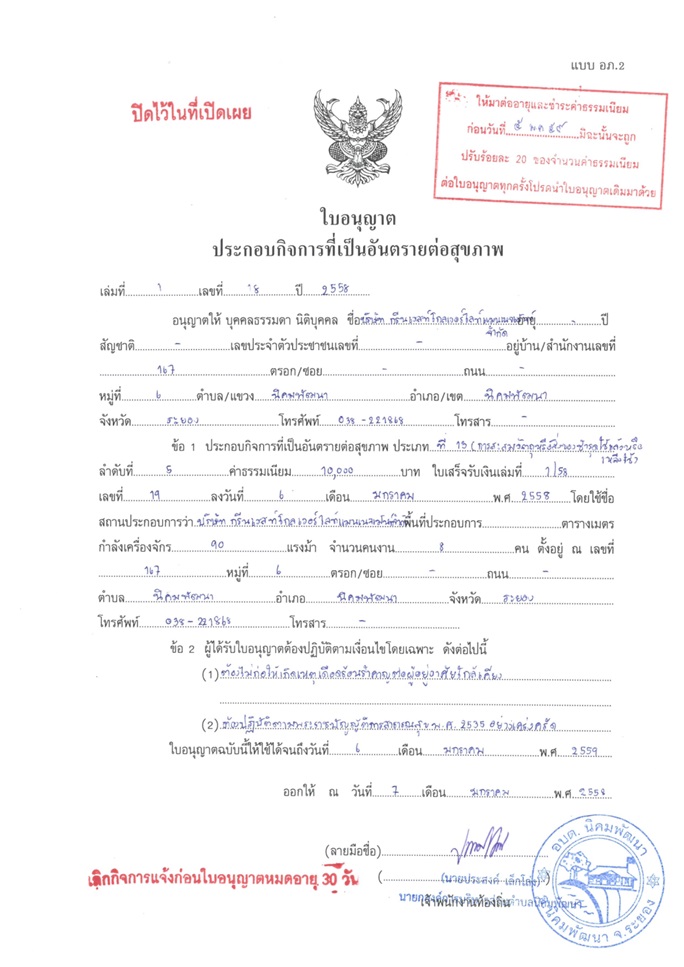 แบบ อภ.2
ปิดไว้ในที่เปิดเผย
ให้มาต่ออายุและชำระค่าธรรมเนียม
ก่อนวันที่ ๕ มค ๕๙ มิฉะนั้นจะถูก
ปรับร้อยละ 20 ของจำนวนค่าธรรมเนียม
ต่อใบอนุญาตทุกครั้งโปรดนำใบอนุญาตเดิมมาด้วย
ใบอนุญาต
ประกอบกิจการที่เป็นอันตรายต่อสุขภาพ
เล่มที่ 1 เลขที่ 18 ปี 2558
อนุญาตให้ บุคคลธรรมดา นิติบุคคล ชื่อ บริษัท กรีนเวสท์ อายุ - ปี
จำกัด
สัญชาติ - เลขประจำตัวประชาชนเลขที่ - อยู่บ้าน/สำนักงานเลขที่
167 ตรอก/ซอย - ถนน -
หมู่ที่ 6 ตำบล/แขวง นิคมพัฒนา อำเภอ/เขต นิคมพัฒนา
จังหวัด ระยอง โทรศัพท์ 038-221868 โทรสาร -
ข้อ 1 ประกอบกิจการที่เป็นอันตรายต่อสุขภาพ ประเภท ที่ 13
ลำดับที่ 5 ค่าธรรมเนียม 10,000 บาท ใบเสร็จรับเงินเล่มที่ 1/58
เลขที่ 19 ลงวันที่ 6 เดือน มกราคม พ.ศ. 2558 โดยใช้ชื่อ
สถานประกอบการว่า บริษัท กรีนเวสท์ พื้นที่ประกอบการ ตารางเมตร
กำลังเครื่องจักร 90 แรงม้า จำนวนคนงาน 8 คน ตั้งอยู่ ณ เลขที่
167 หมู่ที่ 6 ตรอก/ซอย - ถนน -
ตำบล นิคมพัฒนา อำเภอ นิคมพัฒนา จังหวัด ระยอง
โทรศัพท์ 038-221868 โทรสาร -
ข้อ 2 ผู้ได้รับใบอนุญาตต้องปฏิบัติตามเงื่อนไขโดยเฉพาะ ดังต่อไปนี้
(1) ต้องไม่ก่อให้เกิดเหตุเดือดร้อนรำคาญต่อผู้อยู่อาศัยใกล้เคียง
(2) ต้องปฏิบัติตามพระราชบัญญัติการสาธารณสุข พ.ศ. 2535 อย่างเคร่งครัด
ใบอนุญาตฉบับนี้ให้ใช้ได้จนถึงวันที่ 6 เดือน มกราคม พ.ศ 2559
ออกให้ ณ วันที่ 7 เดือน มกราคม พ.ศ 2558
(ลายมือชื่อ)
เลิกกิจการแจ้งก่อนใบอนุญาตหมดอายุ 30 วัน
(นายประสงค์
เจ้าพนักงานท้องถิ่น
อบต. นิคมพัฒนา
อ.นิคมพัฒนา จ.ระยอง